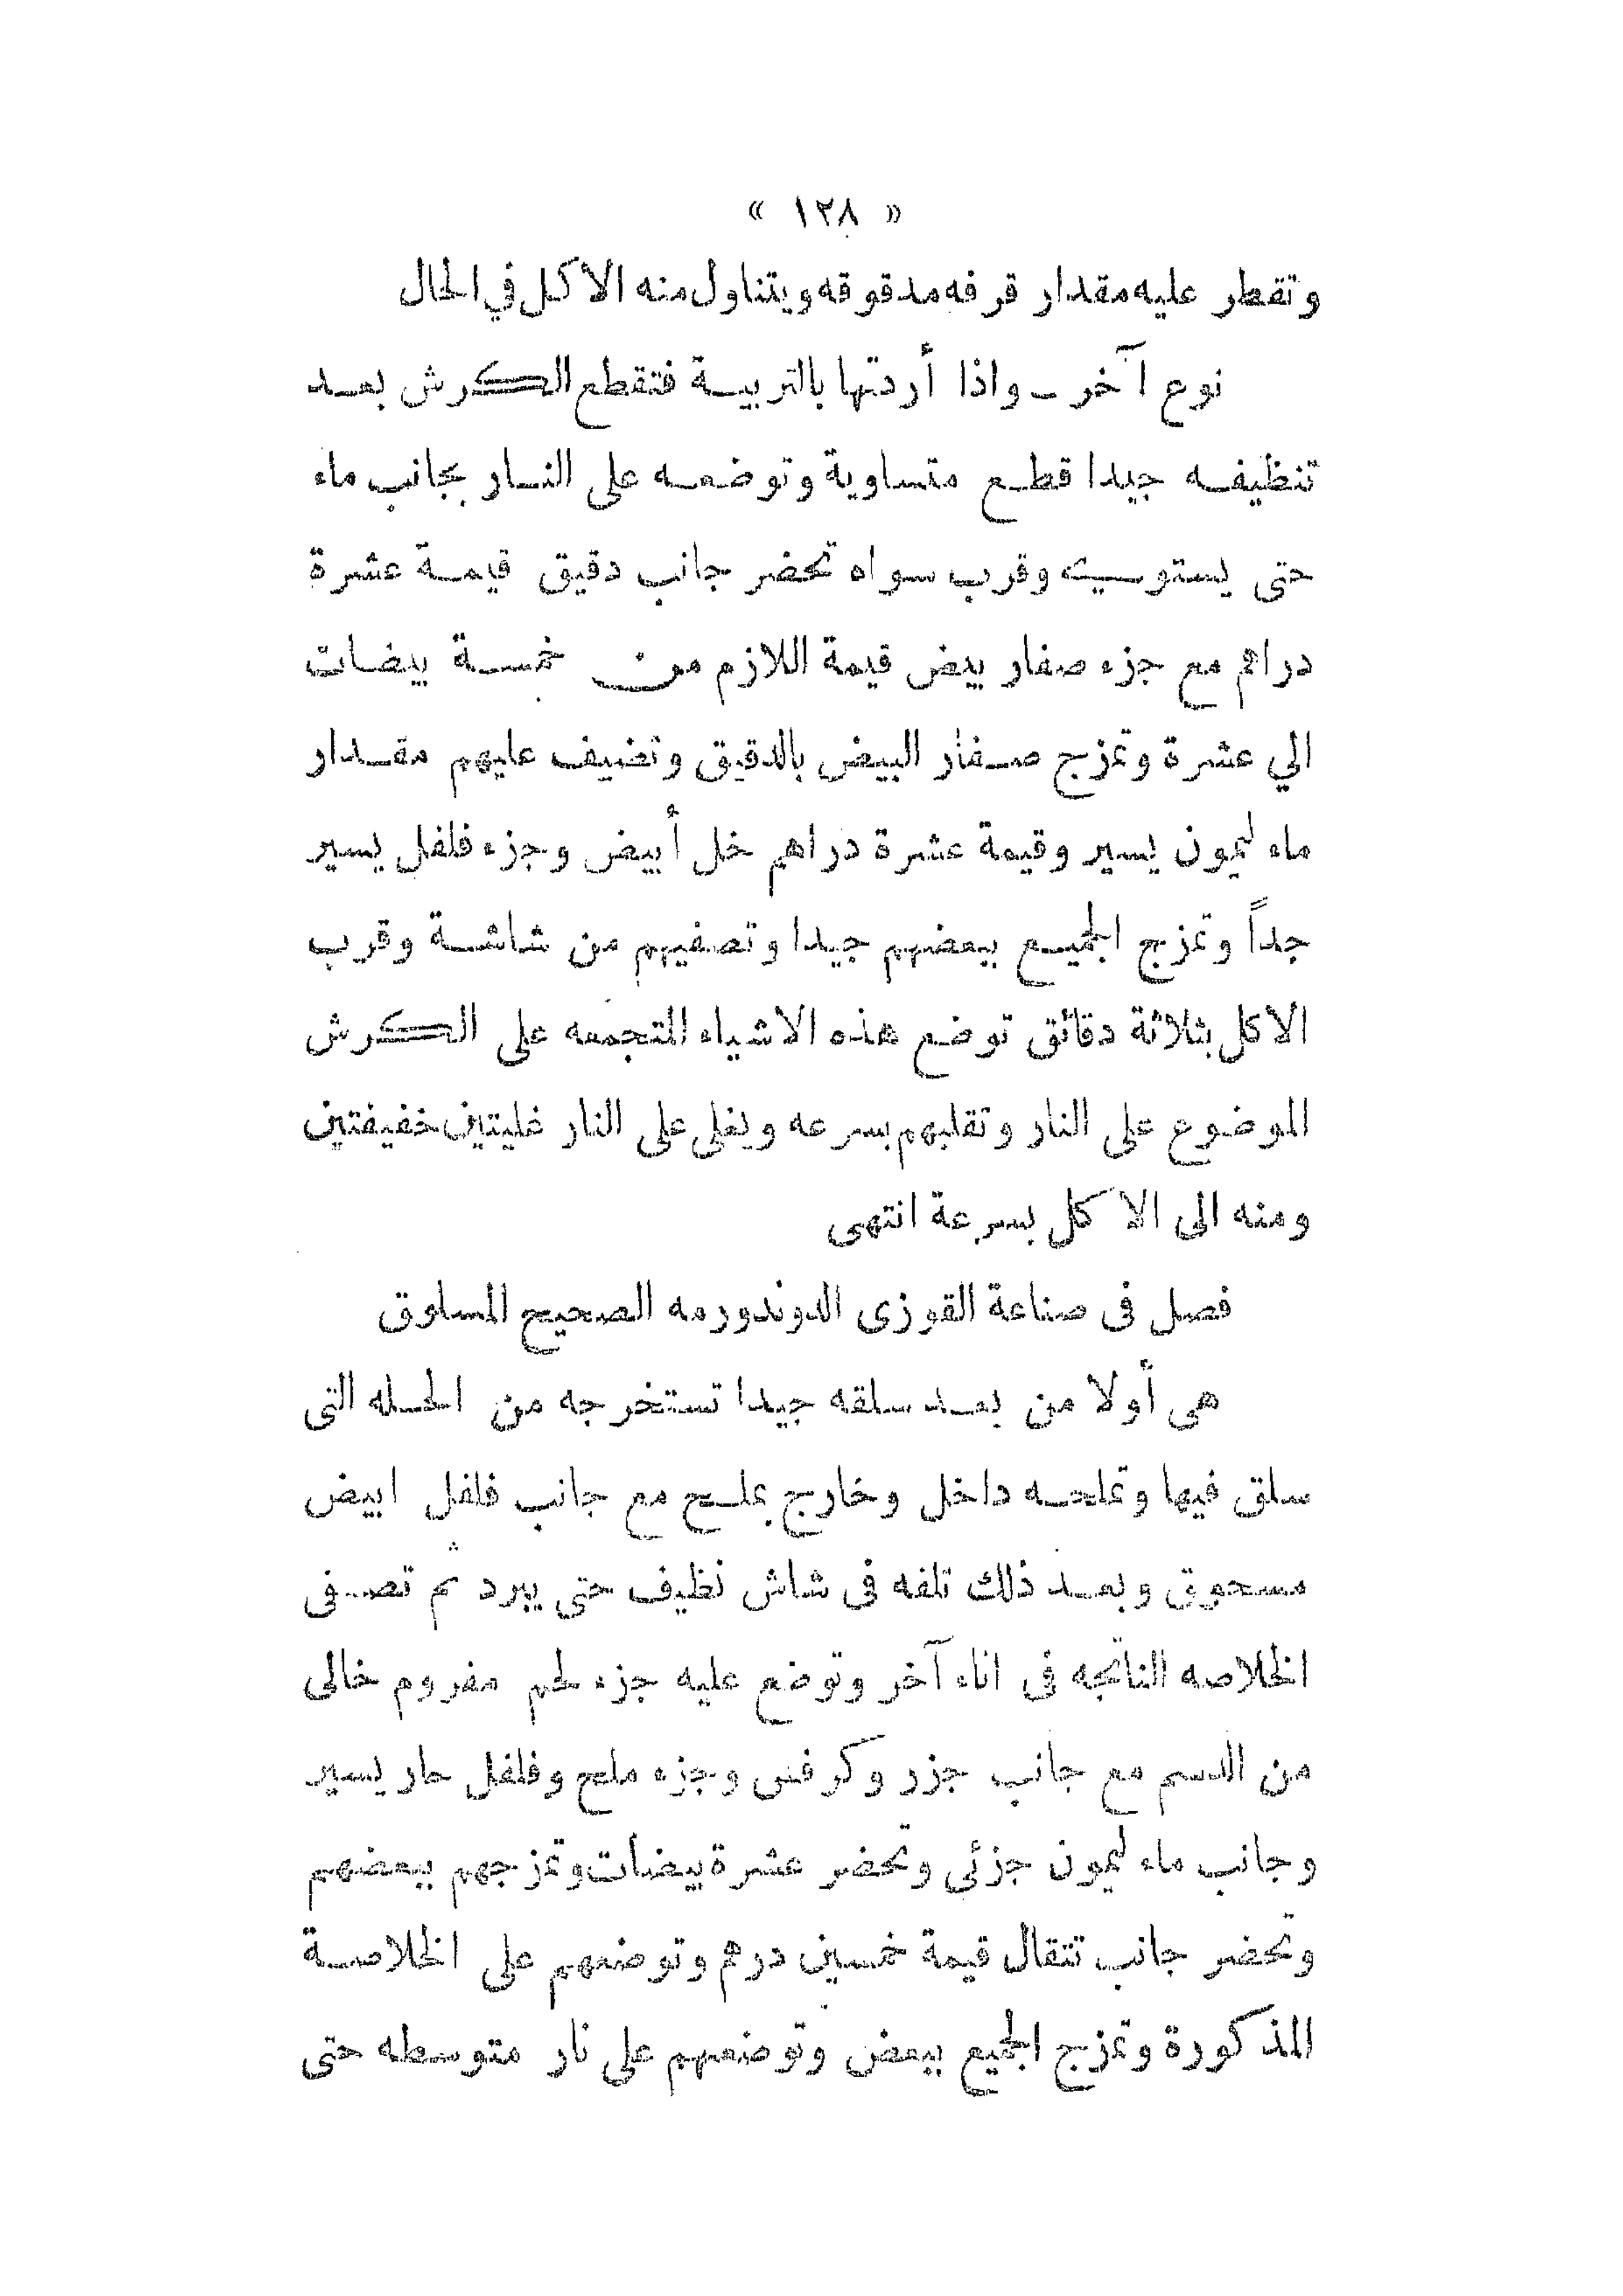 « ١٢٨ »
وتقطر عليه مقدار قرفه مدقوقه ويتناول منه الاكل في الحال
نوع آخر ــ واذا أردتها بالتربيــة فتقطع الكرش بعــد
تنظيفــه جيدا قطــع متساوية وتوضعــه على النــار بجانب ماء
حتى يستوي وقرب سواه تحضر جانب دقيق قيمــة عشرة
دراهم مع جزء صفار بيض قيمة اللازم من خمســة بيضــات
الي عشرة وتمزج صــفار البيض بالدقيق وتضيف عليهم مقــدار
ماء ليمون يسير وقيمة عشرة دراهم خل أبيض وجزء فلفل يسير
جداً وتمزج الجميــع ببعضهم جيدا وتصفيهم من شاشــة وقرب
الاكل بثلاثة دقائق توضع هذه الاشياء المتجمعه على الكرش
الموضوع على النار وتقلبهم بسرعه ويغلى على النار غليتين خفيفتين
ومنه الى الاكل بسرعة انتهى
فصل فى صناعة القوزى الدوندورمه الصحيح المسلوق
هى أولا من بعــد سلقه جيدا تستخرجه من الحــله التى
سلق فيها وتملحــه داخل وخارج بملــح مع جانب فلفل ابيض
مسحوق وبعــد ذلك تلفه فى شاش نظيف حتى يبرد ثم تصــفى
الخلاصه الناتجه فى اناء آخر وتوضع عليه جزء لحم مفروم خالى
من الدسم مع جانب جزر وكرفس وجزء ملح وفلفل حار يسير
وجانب ماء ليمون جزئى وتحضر عشرة بيضات وتمزجهم ببعضهم
وتحضر جانب تتقال قيمة خمسين درهم وتوضعهم على الخلاصــة
المذكورة وتمزج الجميع ببعض وتوضعهم على نار متوسطه حتى